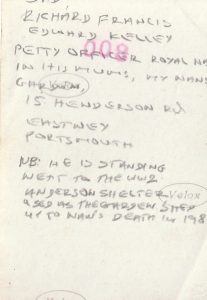 RICHARD FRANCIS
EDWARD KELLEY
PETTY OFFICER ROYAL NA
800
IN HIS MUM'S, MY NAN'S
GARDEN
15 HENDERSON RD
EASTNEY
PORTSMOUTH
NB: HE IS STANDING
NEXT TO THE WW2
ANDERSON SHELTER Velox
USED AS THE GARDEN SHED
UP TO NAN'S DEATH IN 198